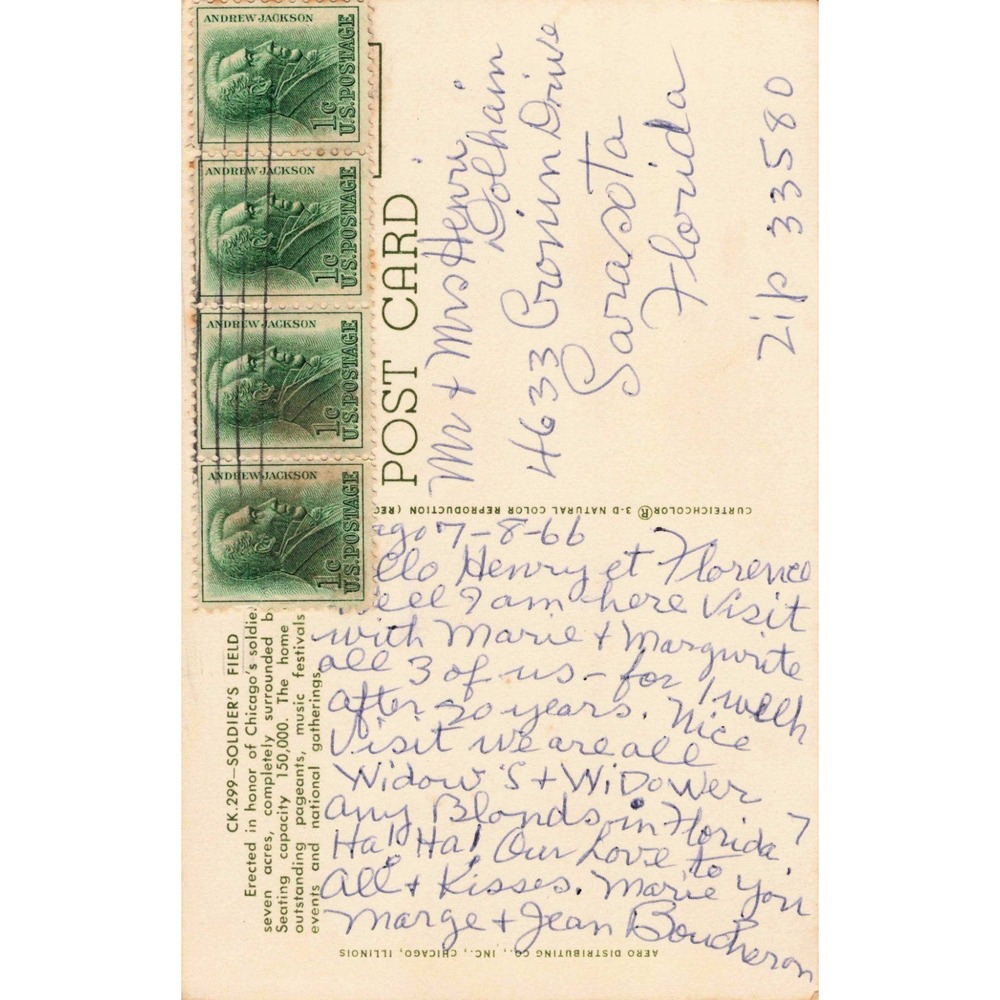 ANDREW JACKSON
1c
U.S. POSTAGE
ANDREW JACKSON
1c
U.S. POSTAGE
ANDREW JACKSON
1c
U.S. POSTAGE
ANDREW JACKSON
1c
U.S. POSTAGE
POST CARD
Mr + Mrs Henri
Dolhain
4633 Drive
Sarasota
Florida
Zip 33580
CURTEICHCOLOR® 3-D NATURAL COLOR REPRODUCTION (REG
CK.299—SOLDIER'S FIELD
Erected in honor of Chicago's soldie
seven acres, completely surrounded b
Seating capacity 150,000. The home
outstanding pageants, music festivals
events and national gatherings.
ago 7-8-66
ello Henry et Florence
Well I am here Visit
with Marie + Margwrite
all 3 of us - for 1 week
after 20 years. Nice
Visit we are all
Widow'S + WiDower
any Blonds in Florida ?
Ha! Ha! Our Love to You
All + Kisses. Marie
Marge + Jean Boucheron
AERO DISTRIBUTING CO., INC., CHICAGO, ILLINOIS